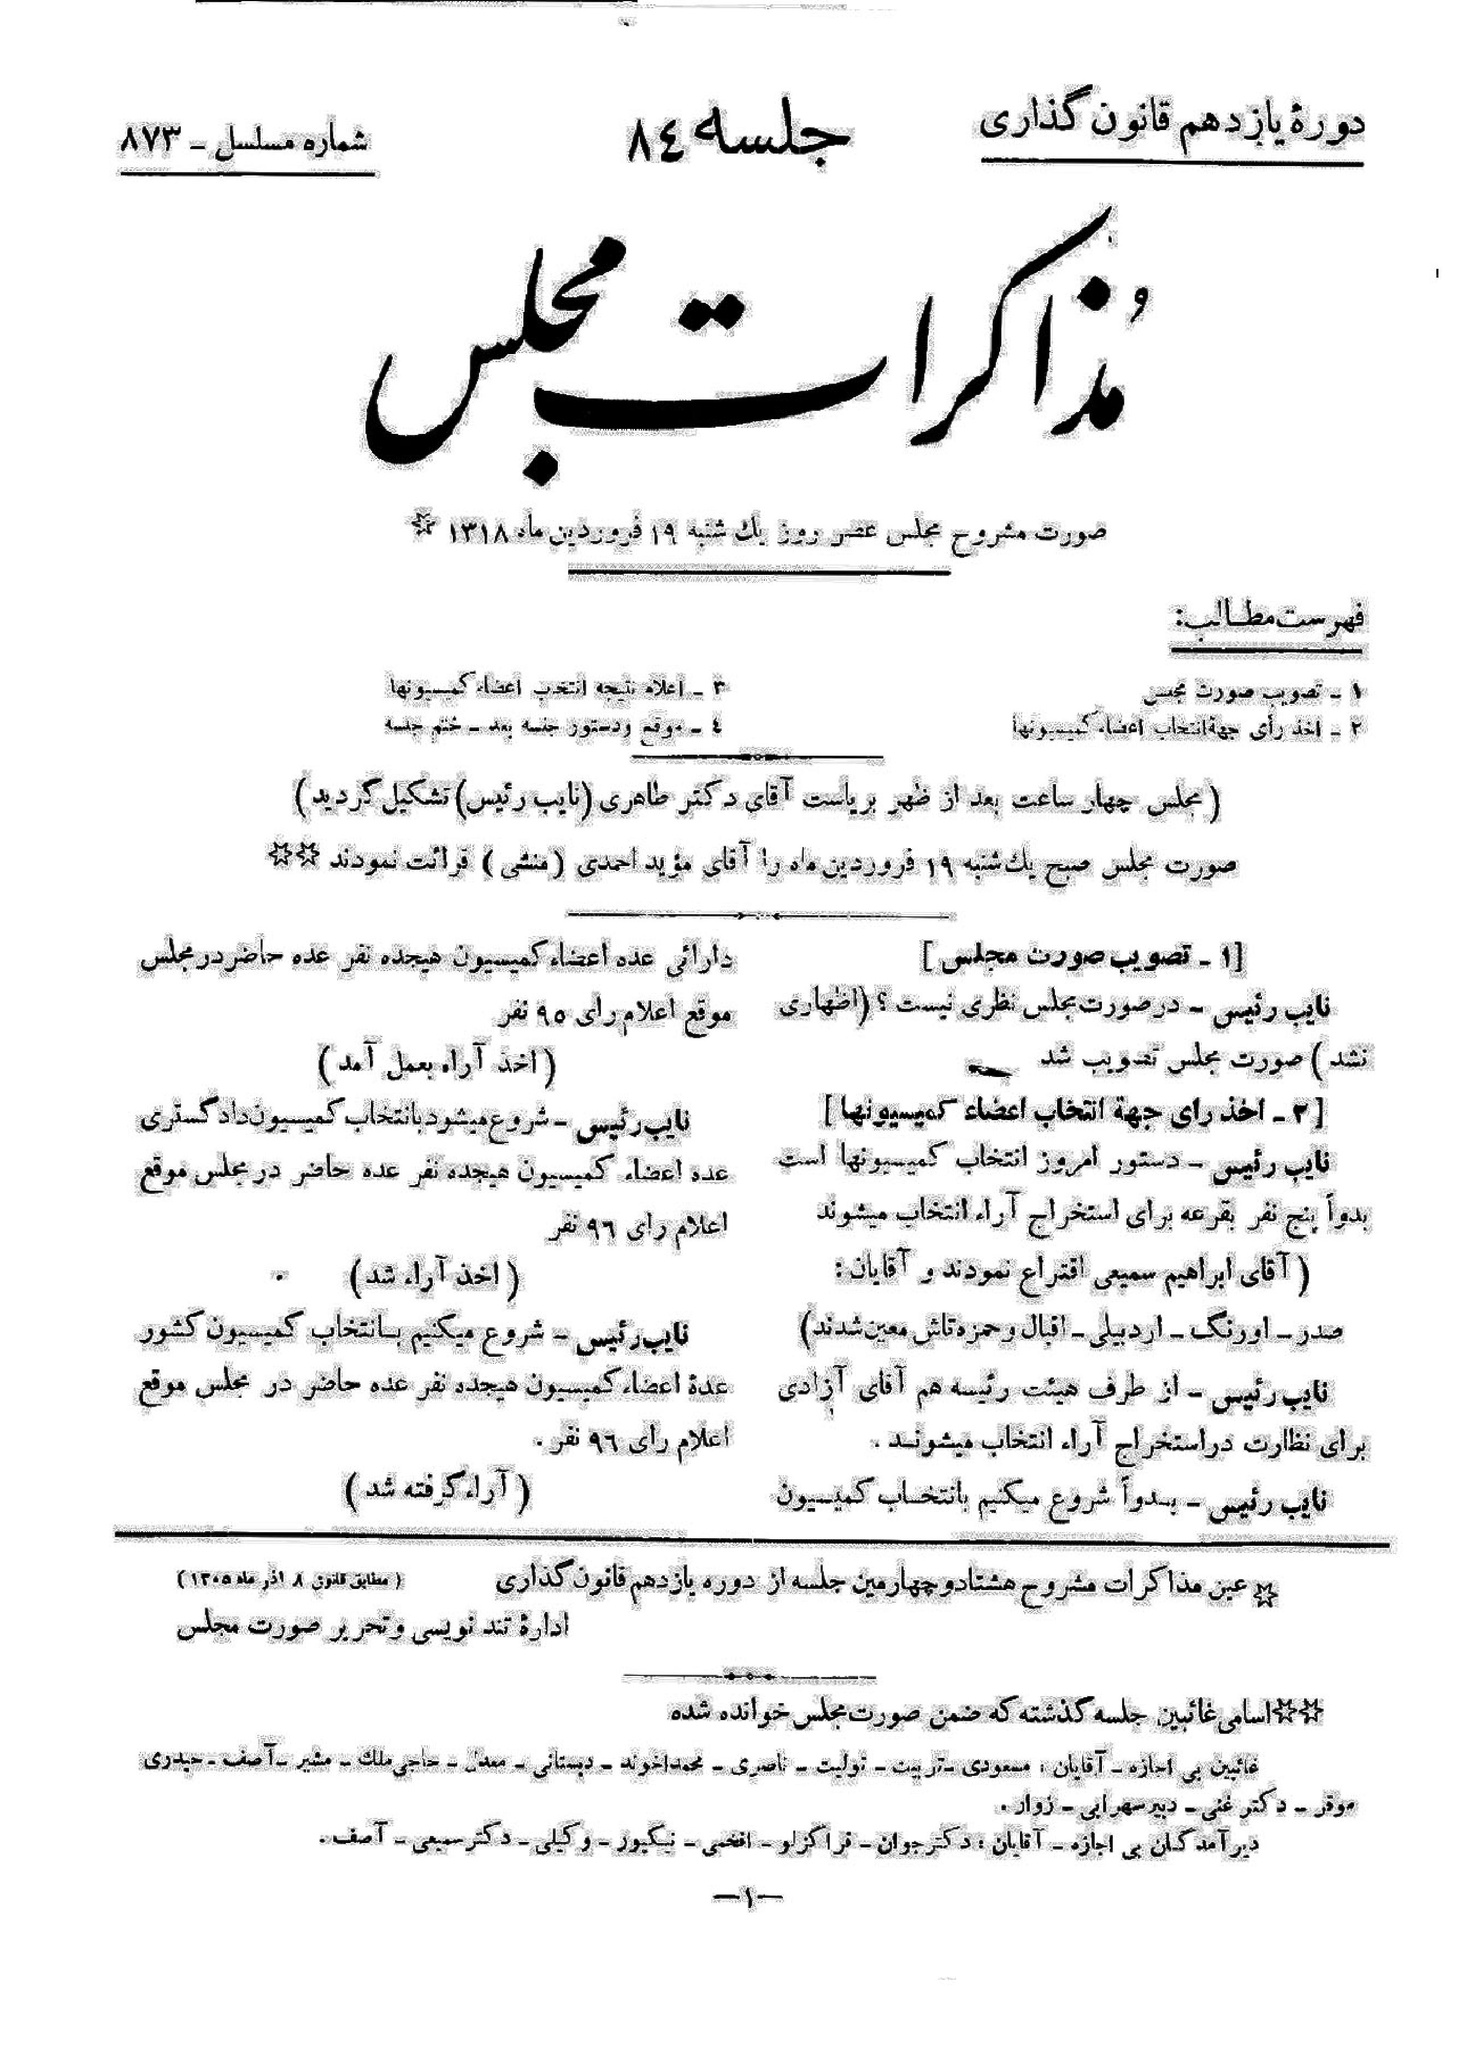 دورهٔ یازدهم قانون گذاری
جلسه ۸٤
شماره مسلسل ـ ۸۷۳
مُذاکرات مجلس
صورت مشروح مجلس عصر روز یك شنبه ۱۹ فروردین ماه ۱۳۱۸ ☆
فهرست مطالب:
۱ ـ تصویب صورت مجلس
۲ ـ اخذ رأی جهة انتخاب اعضاء کمیسیونها
۳ ـ اعلام نتیجه انتخاب اعضاء کمیسیونها
٤ ـ موقع و دستور جلسه بعد ـ ختم جلسه
(مجلس چهار ساعت بعد از ظهر بریاست آقای دکتر طاهری (نایب رئیس) تشکیل گردید)
صورت مجلس صبح یك شنبه ۱۹ فروردین ماه را آقای مؤید احمدی (منشی) قرائت نمودند ☆☆
[۱ ـ تصویب صورت مجلس]
نایب رئیس ـ در صورت مجلس نظری نیست؟ (اظهاری
نشد) صورت مجلس تصویب شد
[۲ ـ اخذ رای جهة انتخاب اعضاء کمیسیونها]
نایب رئیس ـ دستور امروز انتخاب کمیسیونها است
بدواً پنج نفر بقرعه برای استخراج آراء انتخاب میشوند
(آقای ابراهیم سمیعی اقتراع نمودند و آقایان:
صدر ـ اورنگ ـ اردبیلی ـ اقبال و حمزه تاش معین شدند)
نایب رئیس ـ از طرف هیئت رئیسه هم آقای آزادی
برای نظارت در استخراج آراء انتخاب میشونـد .
نایب رئیس ـ بـدواً شروع میکنیم بانتخـاب کمیسیون
دارائی عده اعضاء کمیسیون هیجده نفر عده حاضر در مجلس
موقع اعلام رای ۹۵ نفر
(اخذ آراء بعمل آمد)
نایب رئیس ـ شروع میشود بانتخاب کمیسیون دادگستری
عده اعضاء کمیسیون هیجده نفر عده حاضر در مجلس موقع
اعلام رای ۹٦ نفر
(اخذ آراء شد)
نایب رئیس ـ شروع میکنیم بـانتخاب کمیسیون کشور
عدهٔ اعضاء کمیسیون هیجده نفر عده حاضر در مجلس موقع
اعلام رای ۹٦ نفر .
(آراء گرفته شد)
☆ عین مذاکرات مشروح هشتاد و چهارمین جلسه از دوره یازدهم قانون گذاری (مطابق قانون ۸ آذر ماه ۱۳۰۵)
ادارهٔ تند نویسی و تحریر صورت مجلس
☆☆ اسامی غائبین جلسه گذشته که ضمن صورت مجلس خوانده شده
غائبین بی اجازه ـ آقایان : مسعودی ـ تربیت ـ تولیت ـ ناصری ـ محمد آخوند ـ دبستانی ـ معدل ـ حاجی ملك ـ مشیر ـ آصف ـ حیدری
موقر ـ دکتر غنی ـ دبیر سهرابی ـ زوار .
دیر آمدگان بی اجازه ـ آقایان : دکتر جوان ـ قراگزلو ـ افخمی ـ نیکپور ـ وکیلی ـ دکتر سمیعی ـ آصف .
—۱—